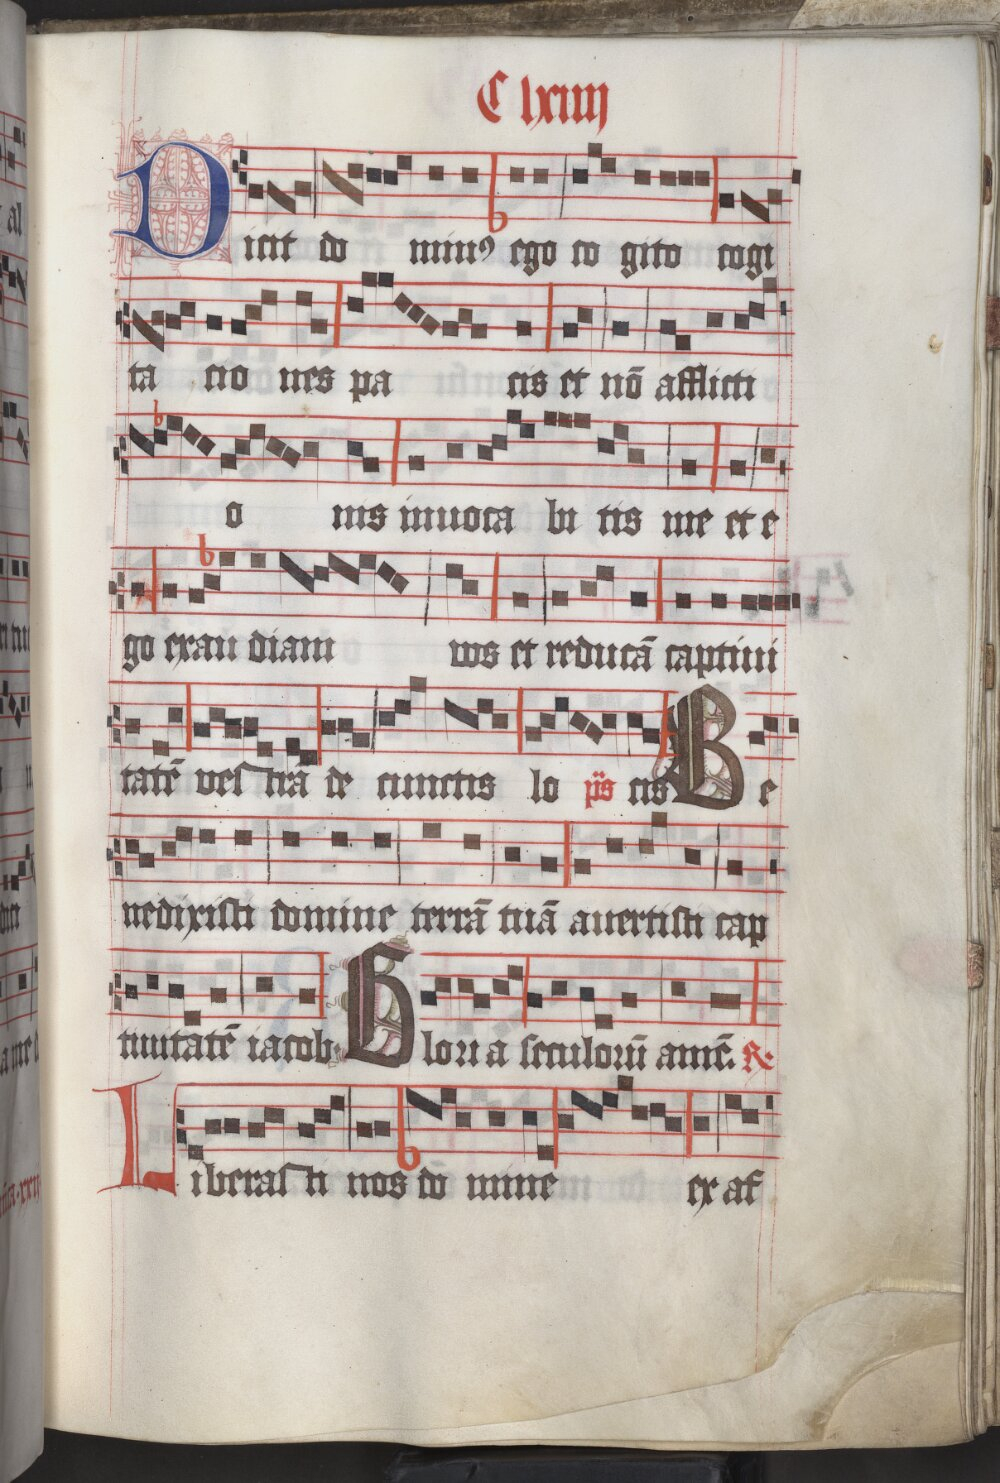 C lxiiij
Dicit do minꝰ ego co gito cogi
ta cio nes pa cis et nō afflicti
o nis inuoca bi tis me et e
go exau diam vos et reducā captiui
tatē vestrā de cunctis lo p̄s cis Be
nedixisti domine terrā tuā auertisti cap
tiuitatē iacob. Gloria seculorū amē. R.
Liberasti nos do mine ex af